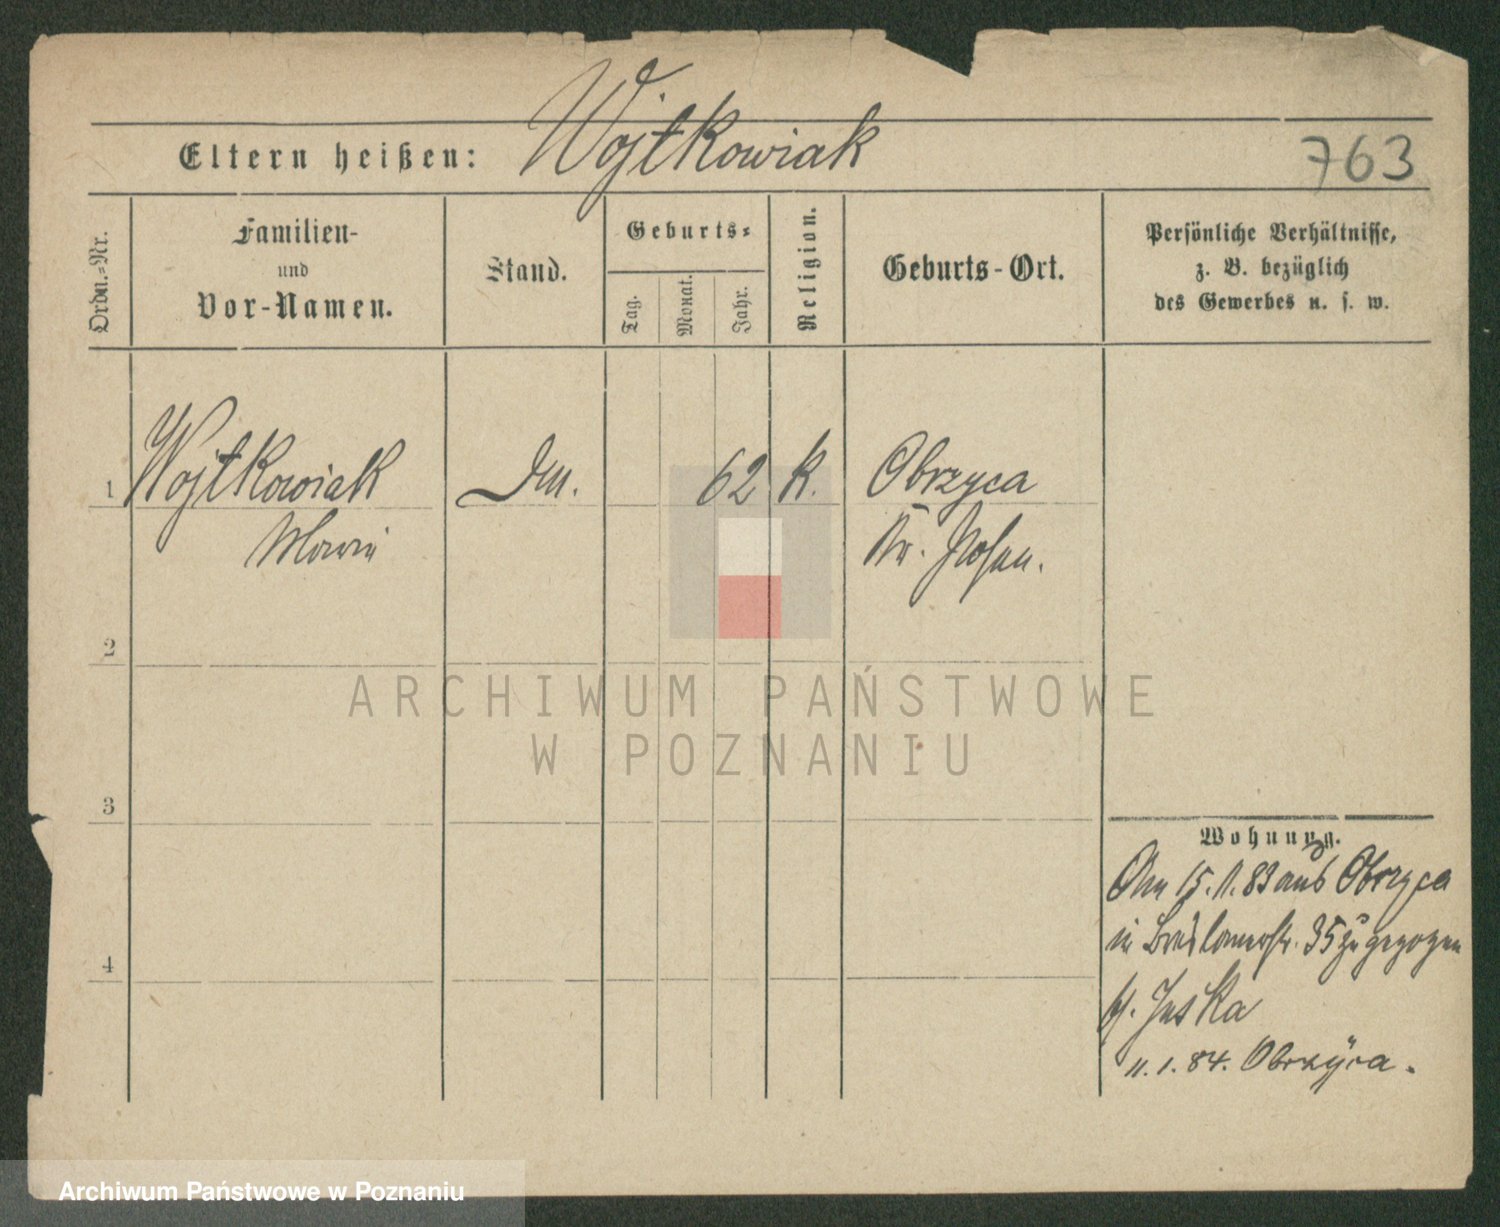 Wojtkowiak
Eltern heißen:
763
Ordn.=Nr.
Familien-
und
Vor-Namen.
Stand.
Geburts=
Tag.
Monat.
Jahr.
Religion.
Geburts-Ort.
Persönliche Verhältnisse,
z. B. bezüglich
des Gewerbes u. s. w.
1 Wojtkowiak 62 k. Obrzyca
Marie Kr. Posen.
2
ARCHIWUM PAŃSTWOWE
W POZNANIU
3
Wohnung.
15. 1. 83 aus Obrzyca
in Breslauerstr. 35 zugezogen
4
b. Juska
11. 1. 84. Obrzyca.
Archiwum Państwowe w Poznaniu